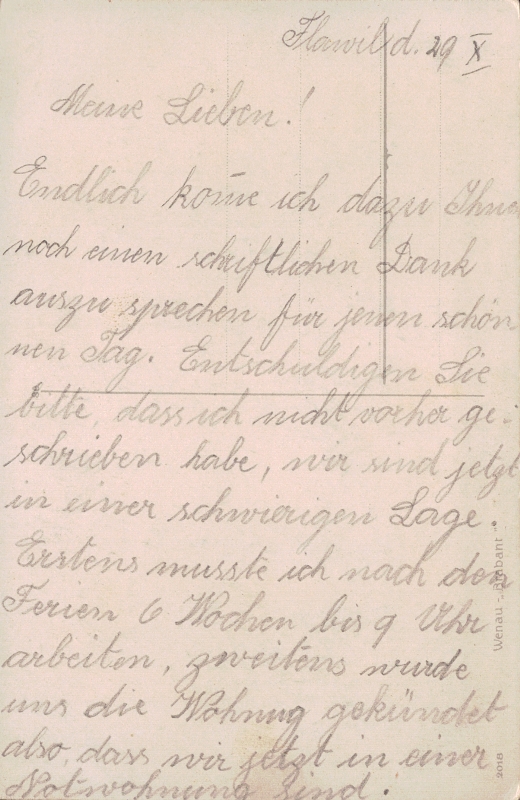 Flawil d. 29 X
Meine Lieben!
Endlich kom̄e ich dazu Ihnen
noch einen schriftlichen Dank
auszusprechen für jenen schön-
nen Tag. Entschuldigen Sie
bitte, dass ich nicht vorher ge-
schrieben habe, wir sind jetzt
in einer schwierigen Lage.
Erstens musste ich nach den
Ferien 6 Wochen bis 9 Uhr
arbeiten, zweitens wurde
uns die Wohnug gekündet
also, dass wir jetzt in einer
Notwohnung sind.
Wenau - „Brabant"
2018